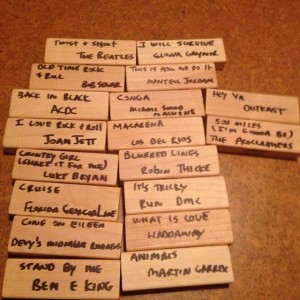 TWIST & SHOUT
THE BEATLES
I WILL SURVIVE
GLORIA GAYNOR
OLD TIME ROCK
& ROLL
BOB SEGAR
THIS IS HOW WE DO IT
MONTELL JORDAN
BACK IN BLACK
ACDC
CONGA
MIAMI SOUND
MACHINE
HEY YA
OUTKAST
I LOVE ROCK & ROLL
JOAN JETT
MACARENA
LOS DEL RIOS
500 MILES
(I'M GONNA BE)
THE PROCLAIMERS
COUNTRY GIRL
(SHAKE IT FOR ME)
LUKE BRYAN
BLURRED LINES
ROBIN THICKE
CRUISE
FLORIDA GEORGIA LINE
IT'S TRICKY
RUN DMC
COME ON EILEEN
DEXY'S MIDNIGHT RUNNERS
WHAT IS LOVE
HADDAWAY
STAND BY ME
BEN E KING
ANIMALS
MARTIN GARRIX